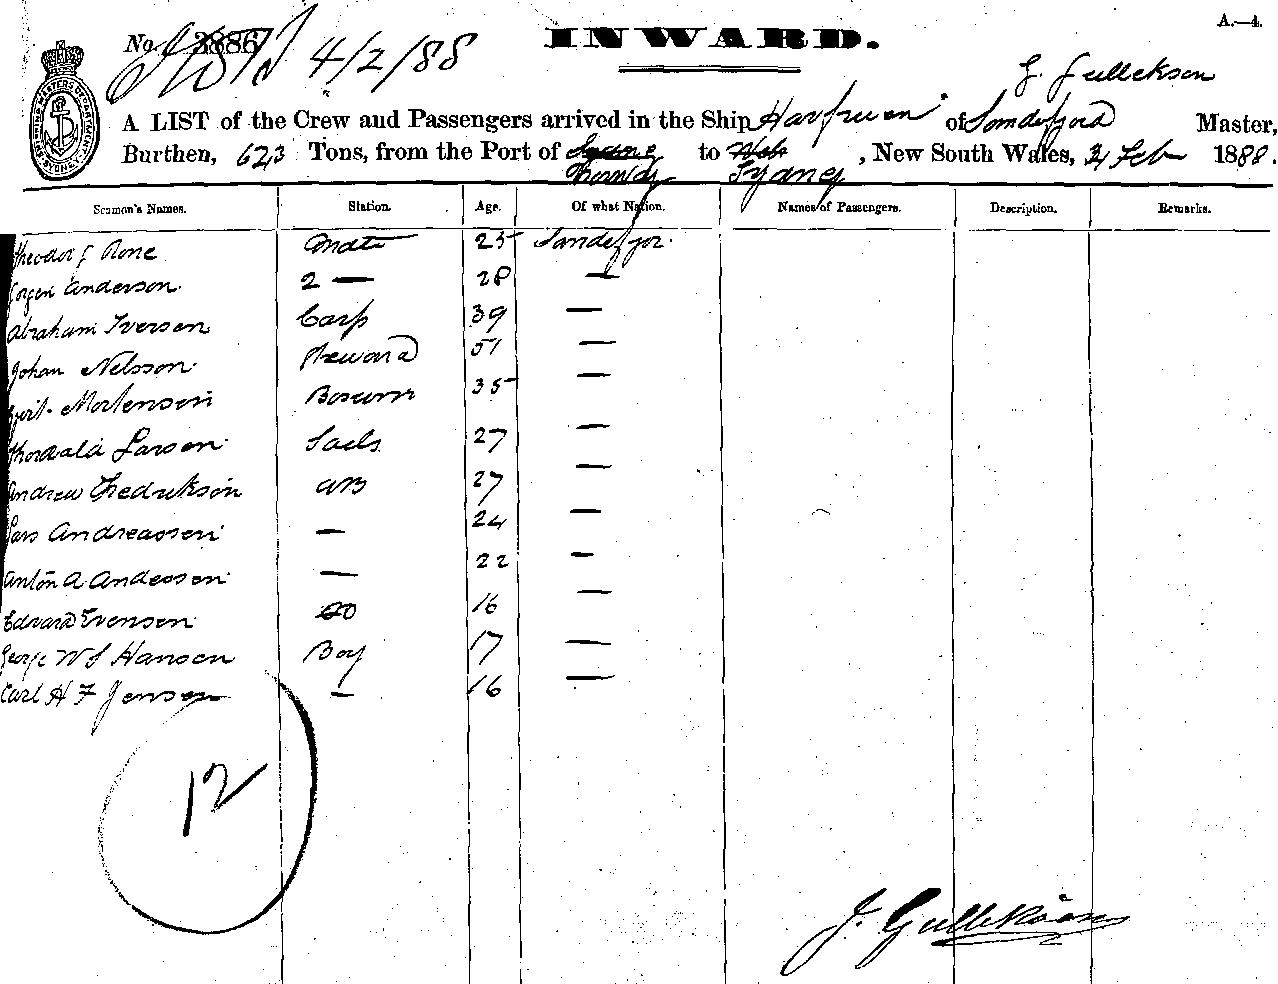 A.—4.
No. 3886 4/2/88 INWARD.
G. Gullekson
A LIST of the Crew and Passengers arrived in the Ship Havfruen of Sandefjord Master,
Burthen, 623 Tons, from the Port of to Sydney, New South Wales, Feb 1888.
Seaman's Names. Station. Age. Of what Nation. Names of Passengers. Description. Remarks.
Theodor J Rone Mate 25 Sandefjor.
Jorgen Anderson. 2 — 28 —
Abraham Iverson Carp 39 —
Johan Nelsson. Steward 51 —
Mortenson Boswn 35 —
Thorvald Larsen Sails. 27 —
Andrew Fredrikson AB 27 —
Lars Andreassen — 24 —
Anton A Andersen — 22 —
Edvard Evensen 16 —
George W S Hansen Boy 17 —
Carl H F Jensen — 16 —
12
J. Gullekson